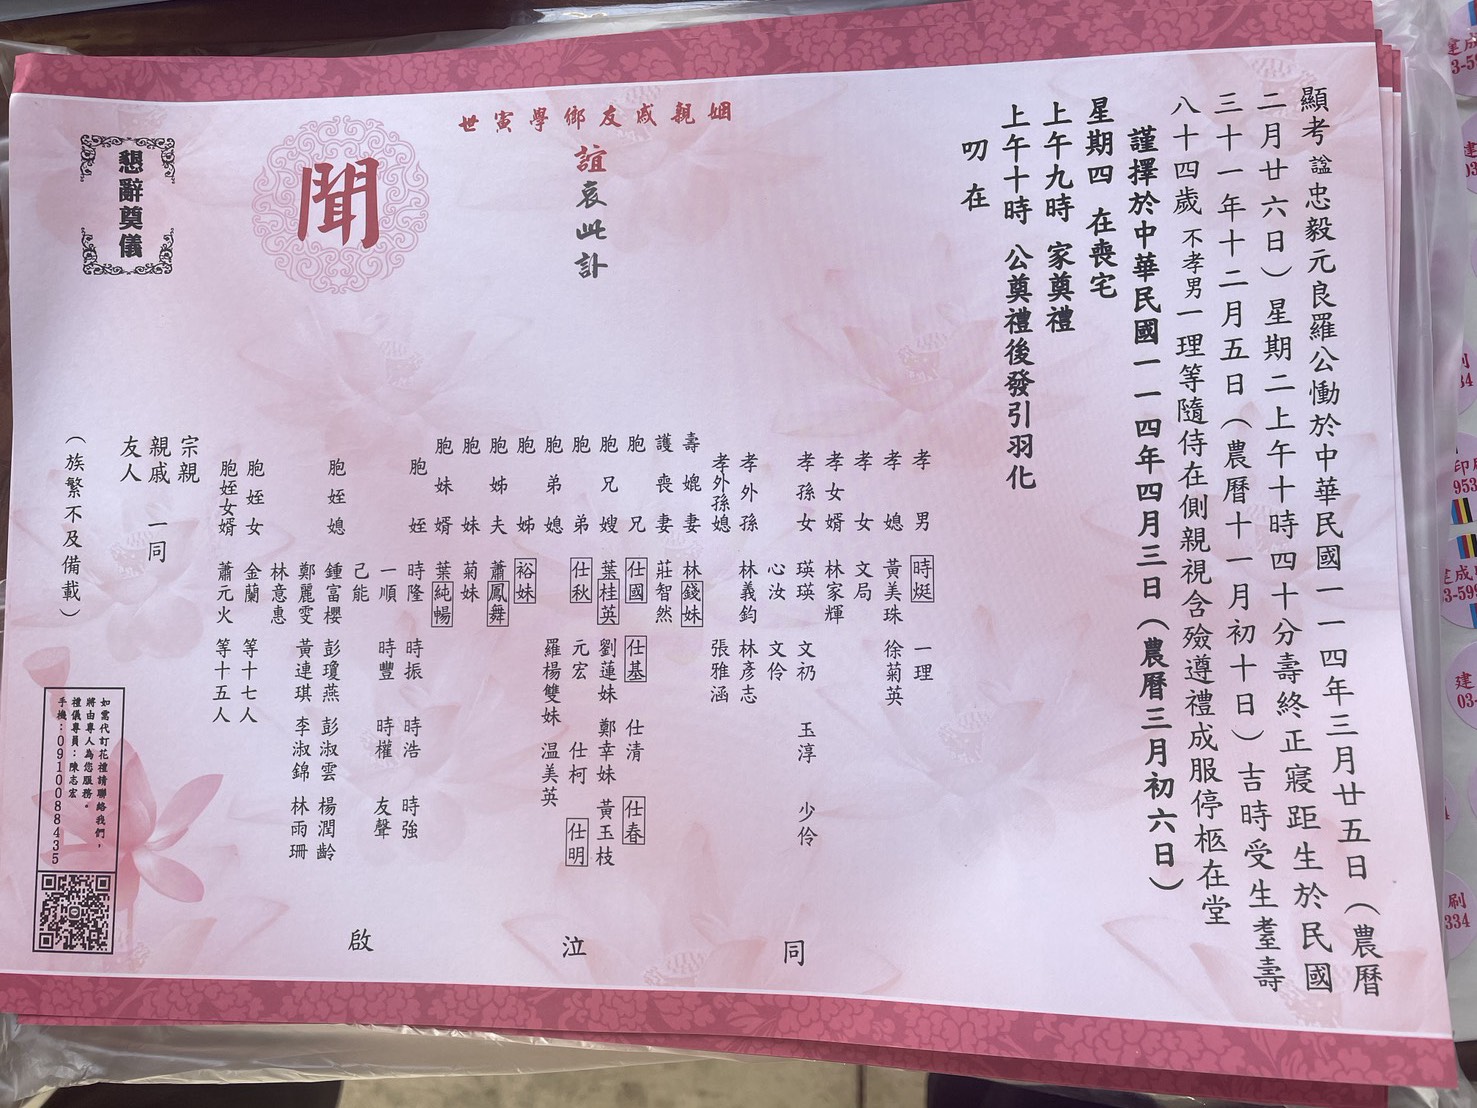 顯考諡忠毅元良羅公慟於中華民國一一四年三月廿五日（農曆
二月廿六日）星期二上午十時四十分壽終正寢距生於民國
三十一年十二月五日（農曆十一月初十日）吉時受生耋壽
八十四歲不孝男一理等隨侍在側親視含殮遵禮成服停柩在堂
謹擇於中華民國一一四年四月三日（農曆三月初六日）
星期四 在喪宅
上午九時 家奠禮
上午十時 公奠禮後發引羽化
叨在
姻親戚友鄉學寅世
誼哀此訃
聞
懇辭奠儀
孝男 時烶 一理
孝媳 黃美珠 徐菊英
孝女 文局
孝女婿 林家輝
孝孫女 瑛瑛 文礽 玉淳 少伶
心汝 文伶
孝外孫 林義鈞 林彥志
孝外孫媳 張雅涵
壽媲妻 林錢妹
護喪妻 莊智然
胞兄 仕國 仕基 仕清 仕春
胞兄嫂 葉桂英 劉蓮妹 鄭幸妹 黃玉枝
胞弟 仕秋 元宏 仕柯 仕明
胞弟媳 羅楊雙妹 温美英
胞姊 裕妹
胞姊夫 蕭鳳舞
胞妹 菊妹
胞妹婿 葉純暢
胞姪 時隆 時振 時浩 時強
一順 時豐 時權 友聲
己能
胞姪媳 鍾富櫻 彭瓊燕 彭淑雲 楊潤齡
鄭麗雯 黃連琪 李淑錦 林雨珊
林意惠
胞姪女 金蘭 等十七人
胞姪女婿 蕭元火 等十五人
宗親
親戚 一同
友人
（族繁不及備載）
同 泣 啟
如需代訂花禮請聯絡我們，
將由專人為您服務。
禮儀專員：陳志宏
手機：0910088435